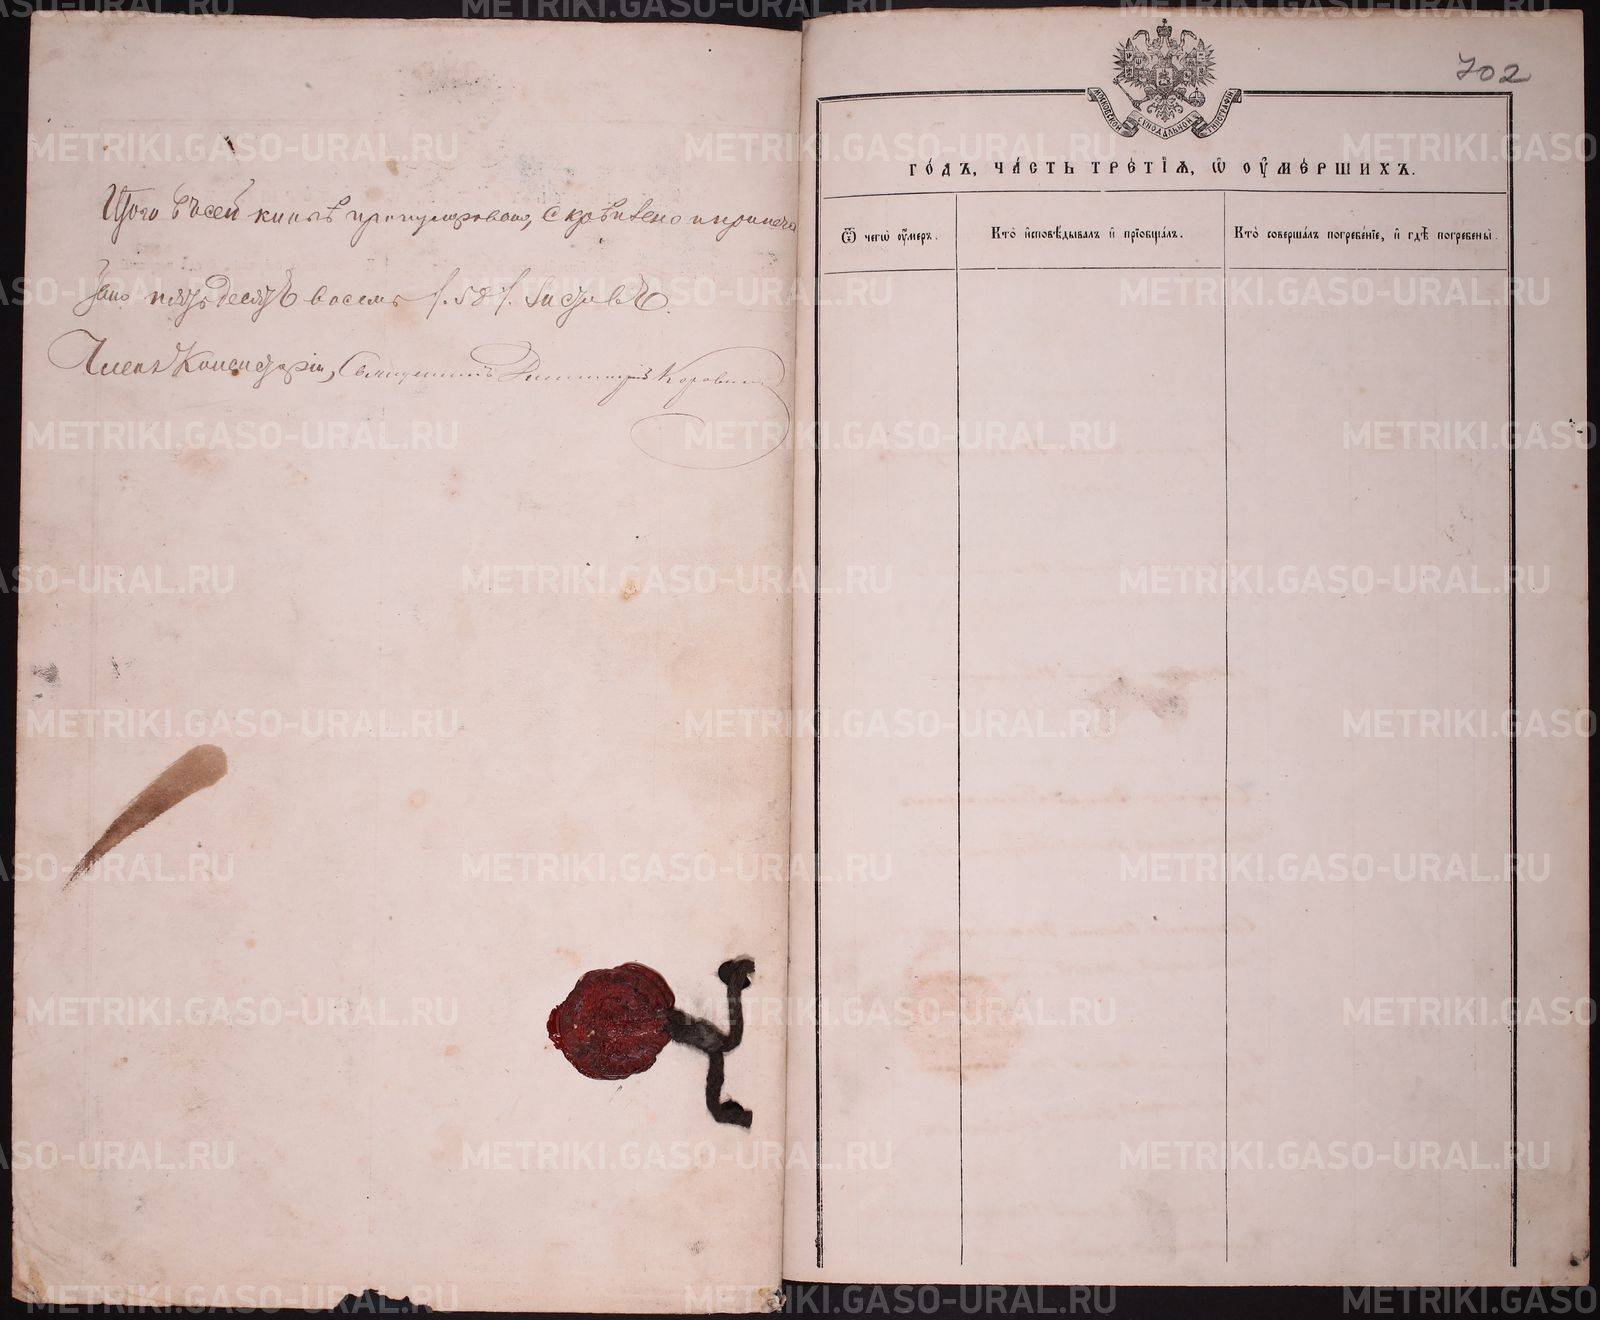 Итого въ сей книгѣ пронумеровано, скрѣплено и припеча
тано пятьдесятъ восемь /.58/. листовъ.
Членъ Консисторіи, Священникъ Димитрій Коровинъ
702
МОСКОВСКОЙ СѴНОДАЛЬНОЙ ТИПОГРАФІИ
ГО́ДЪ, ЧА́СТЬ ТРЕ́ТІѦ, Ѡ҆ ОУ҆МЕ́РШИХЪ.
Ѿ чегѡ̀ оу҆́меръ.
Кто̀ и҆сповѣ́дывалъ и҆ прїѡбща́лъ.
Кто̀ соверша́лъ погребе́нїе, и҆ гдѣ̀ погребены̀.
METRIKI.GASO-URAL.RU